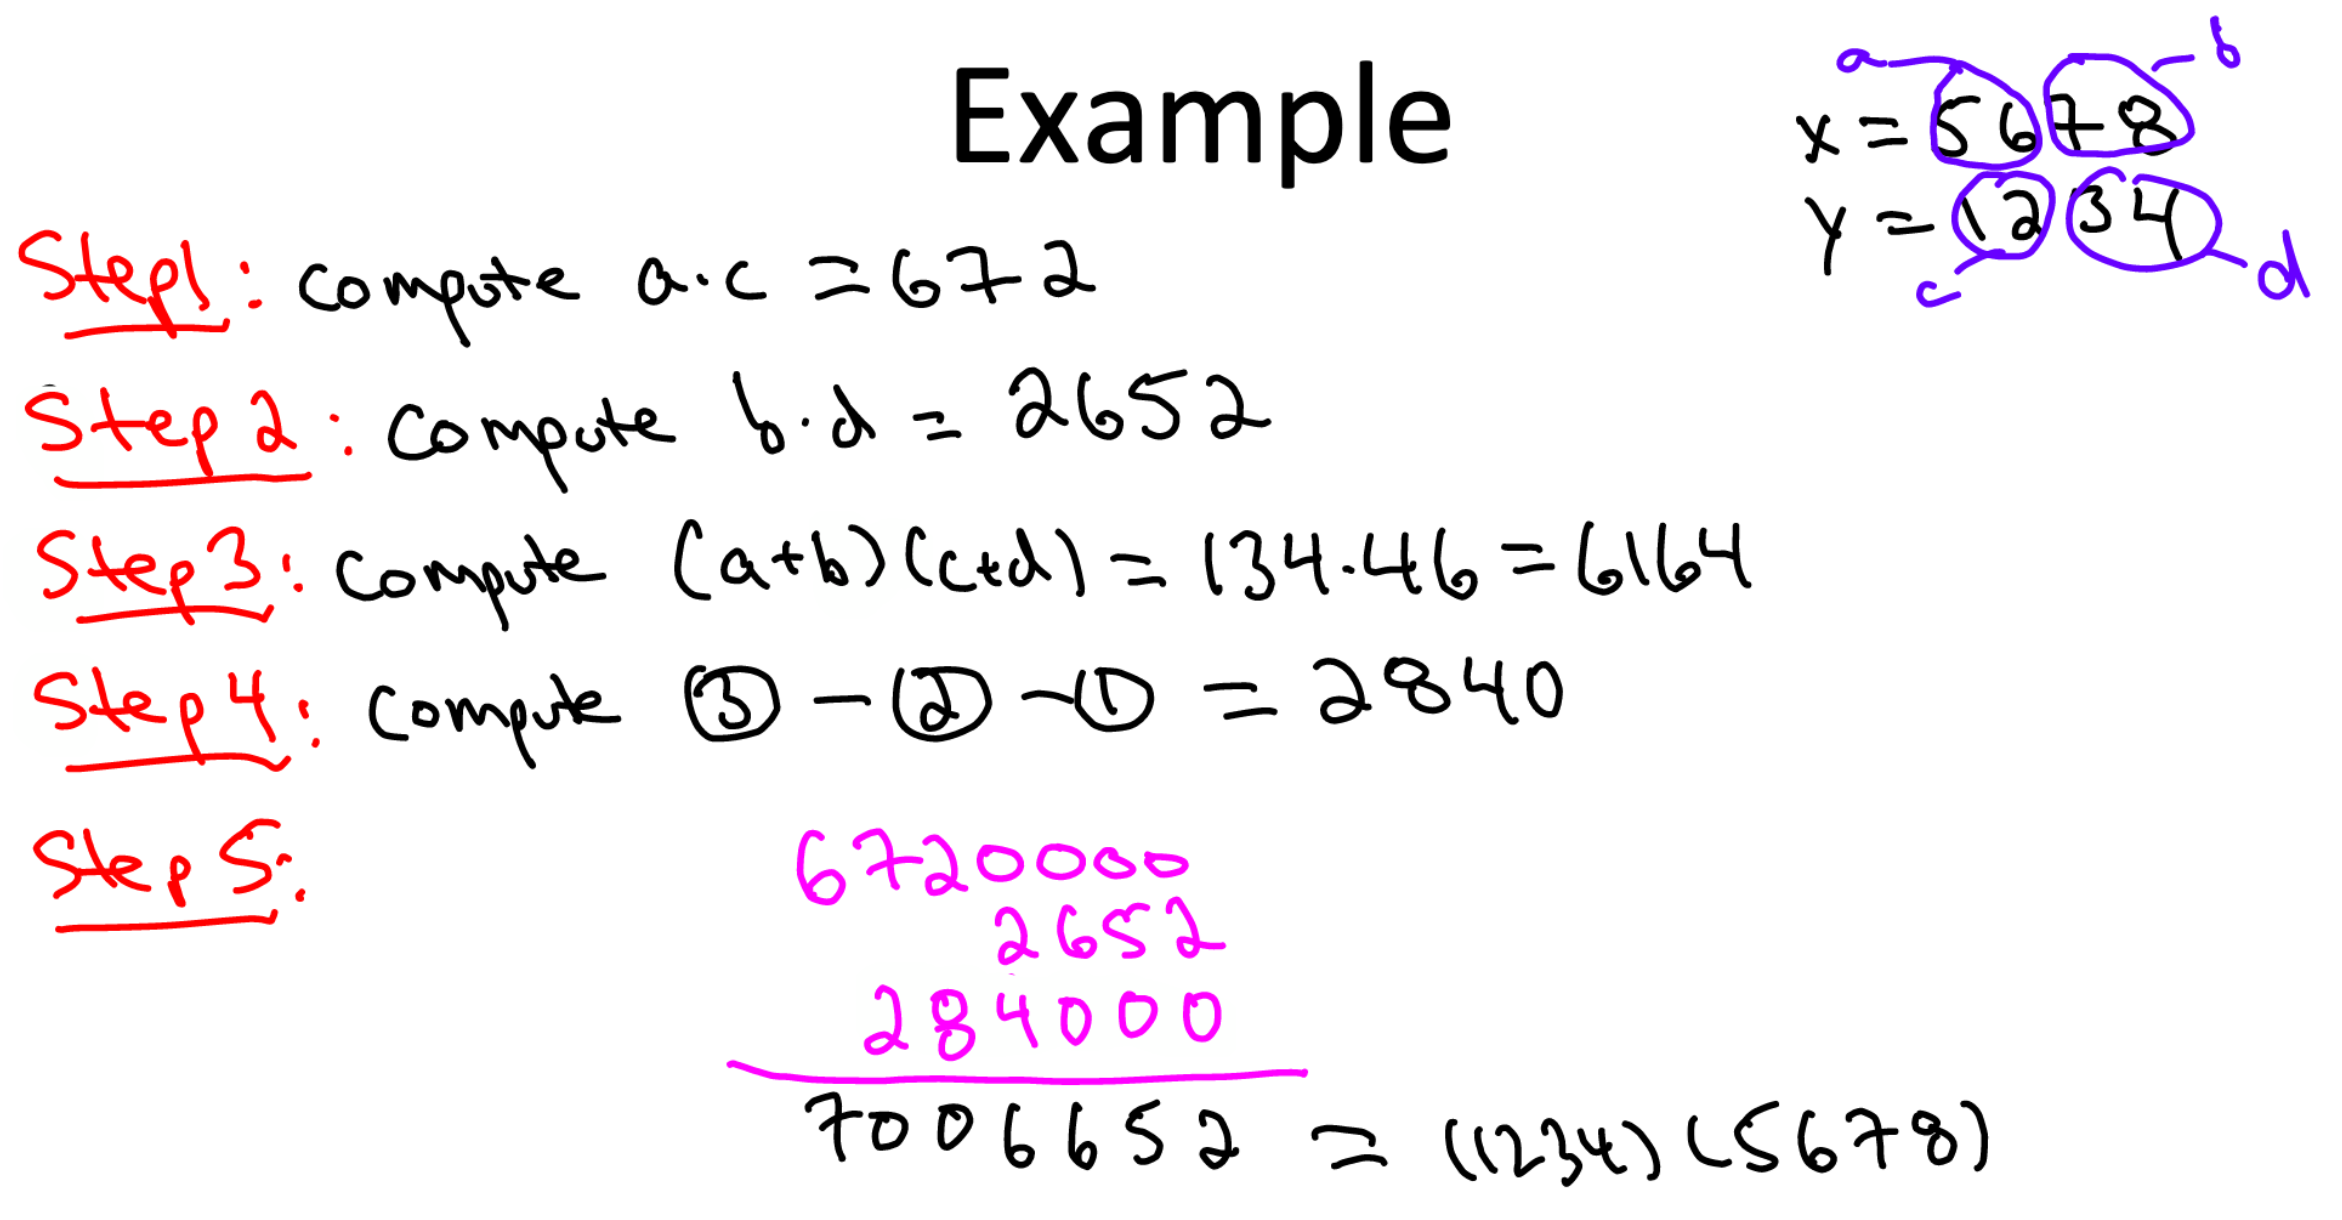 Example
a b
x = 5678
y = 1234
c d
Step1: compute a·c = 672
Step 2: compute b·d = 2652
Step 3: compute (a+b)(c+d) = 134·46 = 6164
Step 4: compute ③ - ② - ① = 2840
Step 5:
6720000
2652
284000
7006652 = (1234)(5678)